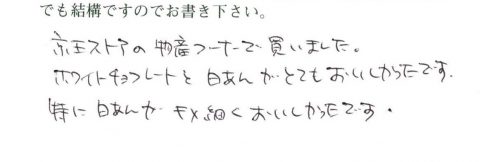 でも結構ですのでお書き下さい。
京王ストアの物産コーナーで買いました。
ホワイトチョコレートと白あんがとてもおいしかったです.
特に白あんがキメ細くおいしかったです.